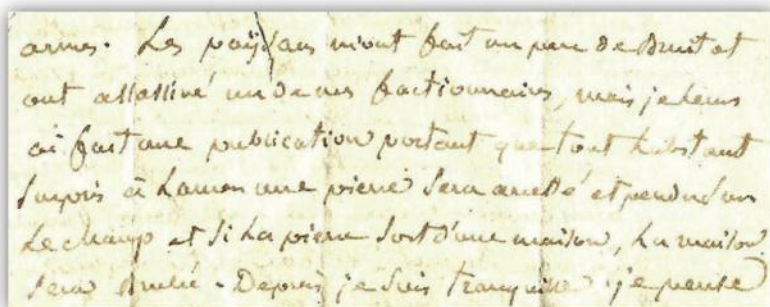 armes. Les païsans m'ont fait un peu de Bruit et
ont assassiné un de mes factionnaires, mais je Leurs
ai fait une publication portant que tout habitant
surpris à Lancer une pierre sera arretté et pendu sur
Le champ et si La pierre sort d'une maison, La maison
sera Brulée. Depuis je suis tranquille. je pense